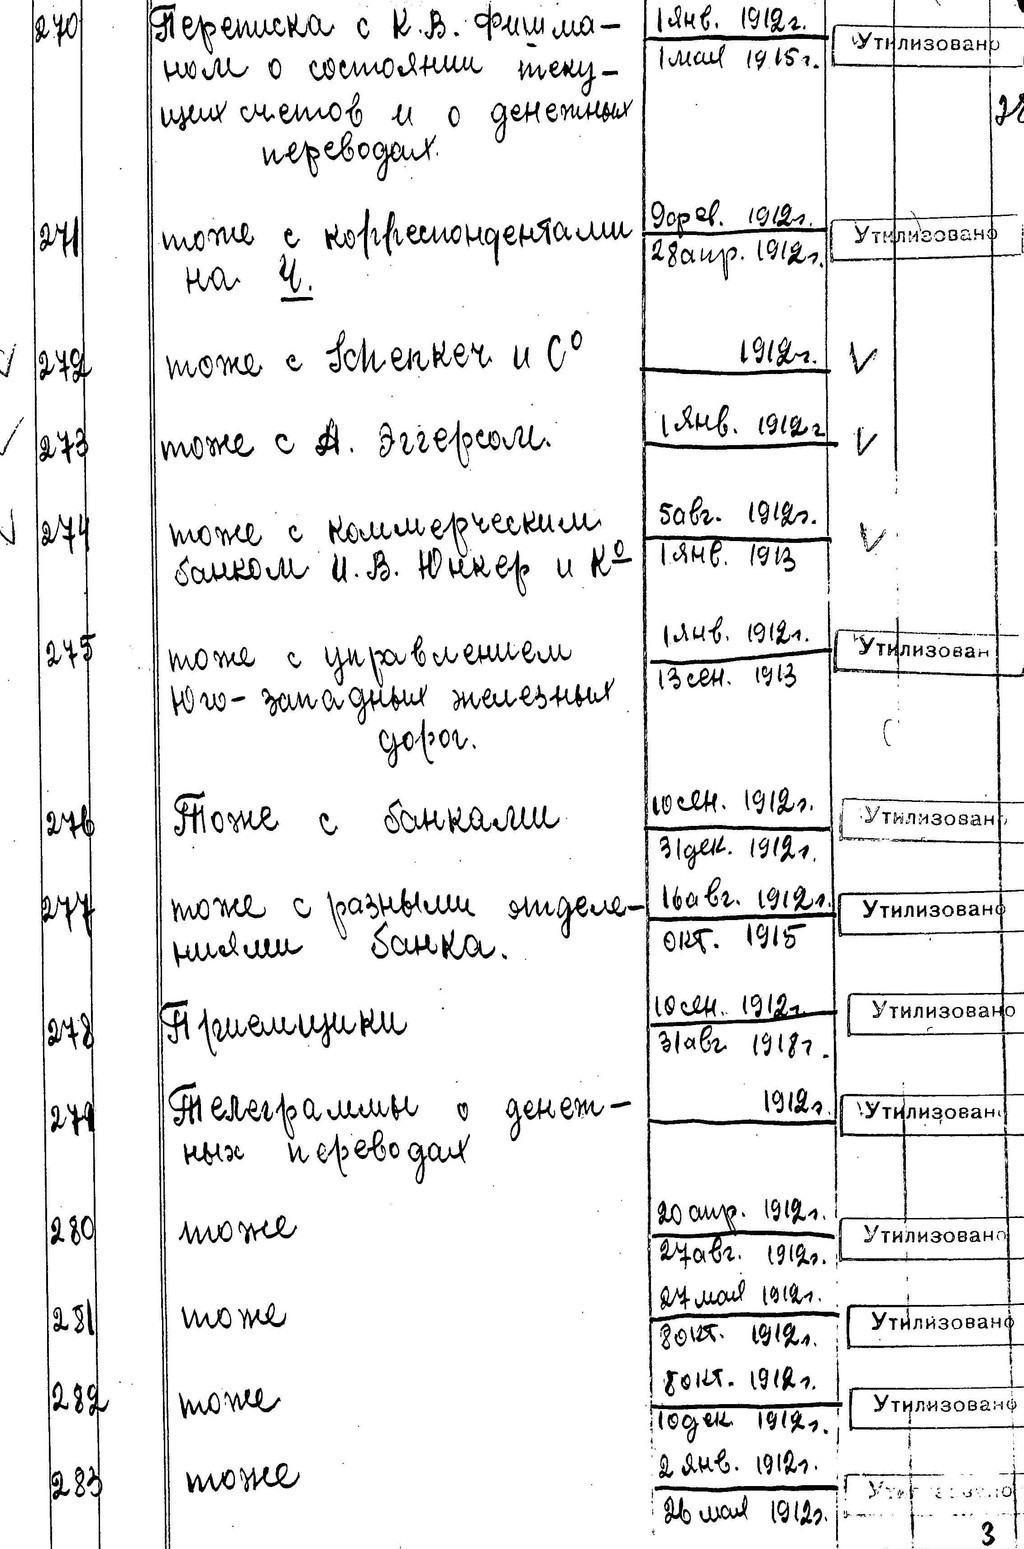 270 Переписка с К.В. Фишма- 1 янв. 1912 г. Утилизовано
ном о состоянии теку- 1 мая 1915 г.
щих счетов и о денежных
переводах.
271 тоже с корреспондентами 9 фев. 1912 г. Утилизовано
на Ч. 28 апр. 1912 г.
272 тоже с и C⁰ 1912 г. V
273 тоже с А. Эггерсом. 1 янв. 1912 г V
274 тоже с коммерческим 5 авг. 1912 г. V
банком И.В. Юнкер и К⁰ 1 янв. 1913
275 тоже с управлением 1 янв. 1912 г. Утилизован
Юго-западных железных 13 сен. 1913
дорог.
276 Тоже с банками 10 сен. 1912 г. Утилизовано
31 дек. 1912 г.
277 тоже с разными отделе- 16 авг. 1912 г. Утилизовано
ниями банка. окт. 1915
278 Приемщики 10 сен. 1912 г. Утилизовано
31 авг. 1918 г.
279 Телеграммы о денеж- 1912 г. Утилизовано
ных переводах
280 тоже 20 апр. 1912 г. Утилизовано
27 авг. 1912 г.
281 тоже 27 мая 1912 г. Утилизовано
8 окт. 1912 г.
282 тоже 8 окт. 1912 г. Утилизовано
10 дек 1912 г.
283 тоже 2 янв. 1912 г. Утилизовано
26 мая 1912 г.
3